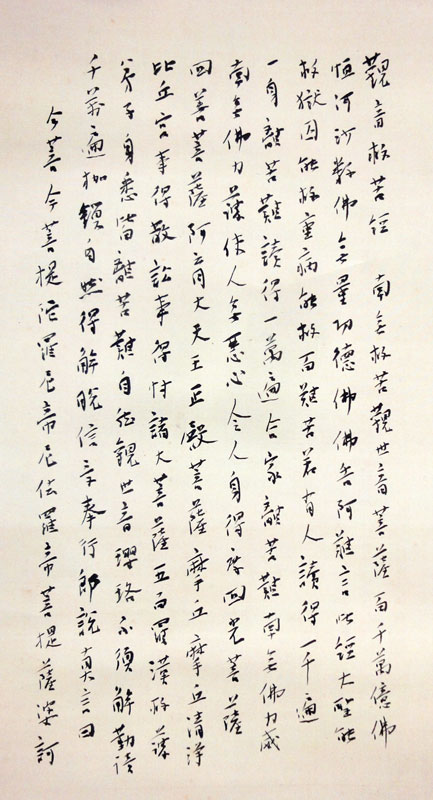 觀音救苦經 南無救苦觀世音菩薩百千萬億佛
恒河沙數佛無量功德佛佛告阿難言此經大聖能
救獄囚能救重病能救百難苦若有人讀得一千遍
一身離苦難讀得一萬遍合家離苦難南無佛力威
南無佛力護使人無惡心令人身得度回光菩薩
回善菩薩阿育大天王正殿菩薩摩丘摩丘清淨
比丘官事得散訟事得休諸大菩薩五百羅漢救護
弟子身悉皆離苦難自然觀世音瓔珞不須解勤讀
千萬遍枷鎖自然得解脫信受奉行即說真言曰
今菩今菩提陀羅尼帝尼佉羅帝菩提薩婆訶